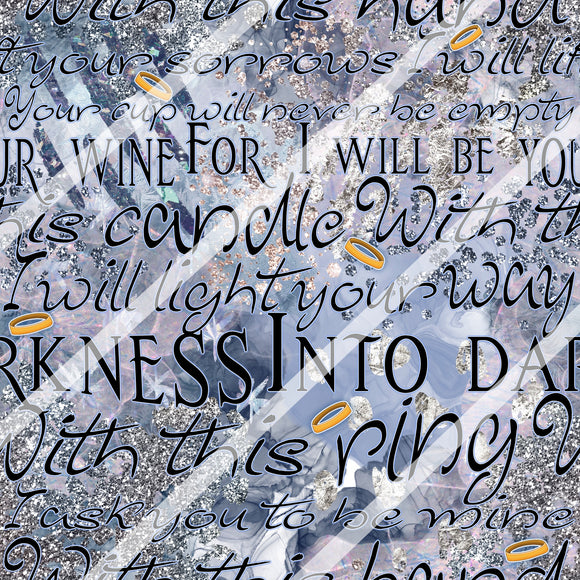 With this hand
t your sorrows I will lif
Your cup will never be empty
UR WINE FOR I WILL BE YOU
his candle With th
I will light your way
RKNESS INTO DAR
With this ring W
I ask you to be mine
With this hand